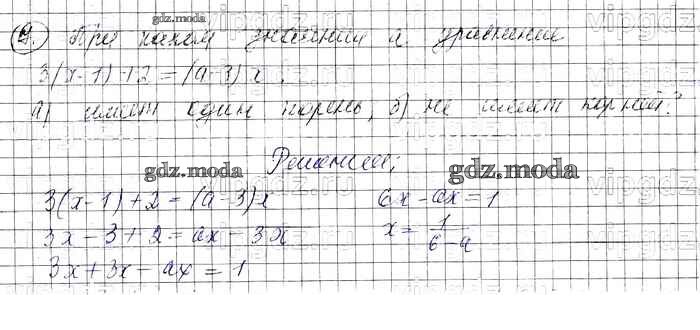 gdz.moda
vipgdz
4. При каком значении a уравнение
3(x-1)+2=(a-3)x :
а) имеет один корень, б) не имеет корней?
Решение:
gdz.moda
gdz.moda
vipgdz.ru
vipgdz
3(x-1)+2=(a-3)x
3x-3+2=ax-3x
3x+3x-ax=1
6x-ax=1
x=1/(6-a)